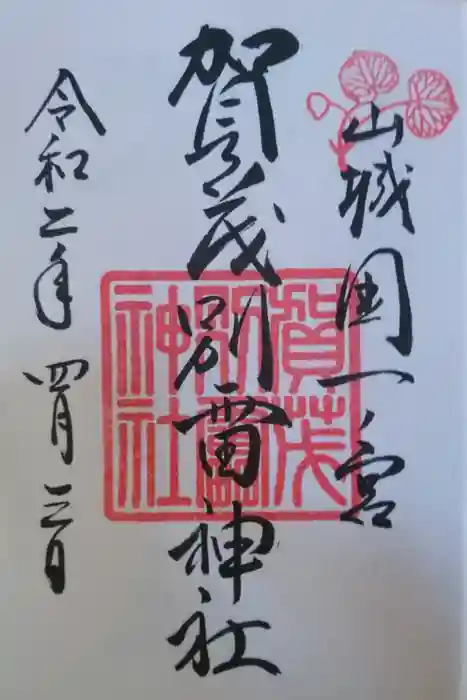 山城国一ノ宮
賀茂別雷神社
賀茂別雷神社
令和二年四月三日